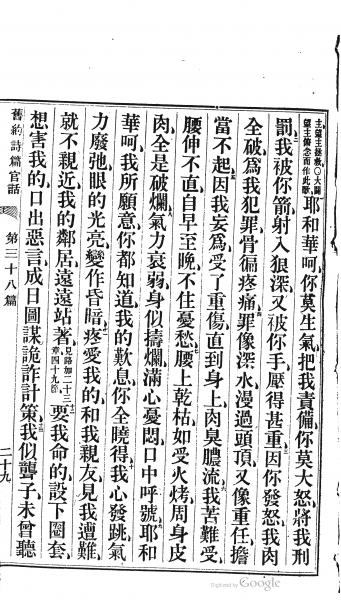 主望主拯救〇大闢
望主俯念而作此歌
耶和華呵你莫生氣把我責備你莫大怒將我刑
罰我被你箭射入狠深又被你手壓得甚重因你發怒我肉
全破爲我犯罪骨徧疼痛罪像深水漫過頭頂又像重任擔
當不起因我妄爲受了重傷直到身上肉臭膿流我苦難受
腰伸不直自早至晚不住憂愁腰上乾枯如受火烤周身皮
肉全是破爛氣力衰弱身似擣爛滿心憂悶口中呼號耶和
華呵我所願意你都知道我的歎息你全曉得我心發跳氣
力廢弛眼的光亮變作昏暗疼愛我的和我親友見我遭難
就不親近我的鄰居遠遠站著見路加二十三章四十九節要我命的設下圈套
想害我的口出惡言成日圖謀詭詐計策我似聾子未曾聽
舊約詩篇官話 第三十八篇 二十九
Digitized by Google